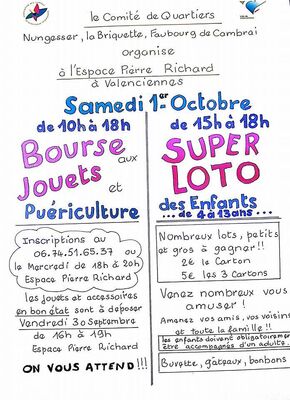 le Comité de Quartiers
Nungesser, la Briquette, Faubourg de Cambrai
organise
à l'Espace Pierre Richard
à Valenciennes
Samedi 1er Octobre
de 10h à 18h
Bourse
aux
Jouets
et
Puériculture
Inscriptions au
06.74.51.65.37 ou
le Mercredi de 18h à 20h
Espace Pierre Richard
les jouets et accessoires
en bon état sont à déposer
Vendredi 30 Septembre
de 16h à 19h
Espace Pierre Richard
ON VOUS ATTEND !!!
de 15h à 18h
SUPER
LOTO
des Enfants
... de 4 à 13 ans ...
Nombreux lots, petits
et gros à gagner !!
2€ le Carton
5€ les 3 Cartons
Venez nombreux vous
amuser !
Amenez vos amis, vos voisins
et toute la famille !!
les enfants doivent obligatoirement
être accompagnés d'un adulte.
Buvette, gâteaux, bonbons